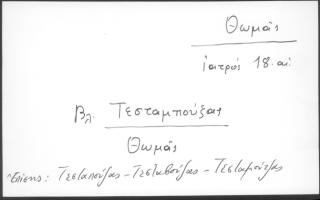 Θωμάς
ἰατρός 18. αἰ.
Βλ. Τεσταμπούζας
Θωμάς
Ἐπίσης: Τεσταπούζας - Τεσταβούζας - Τεσταμούτζας